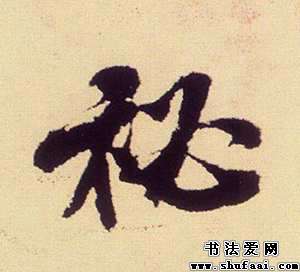 秘
书法爱网
www.shufaai.com